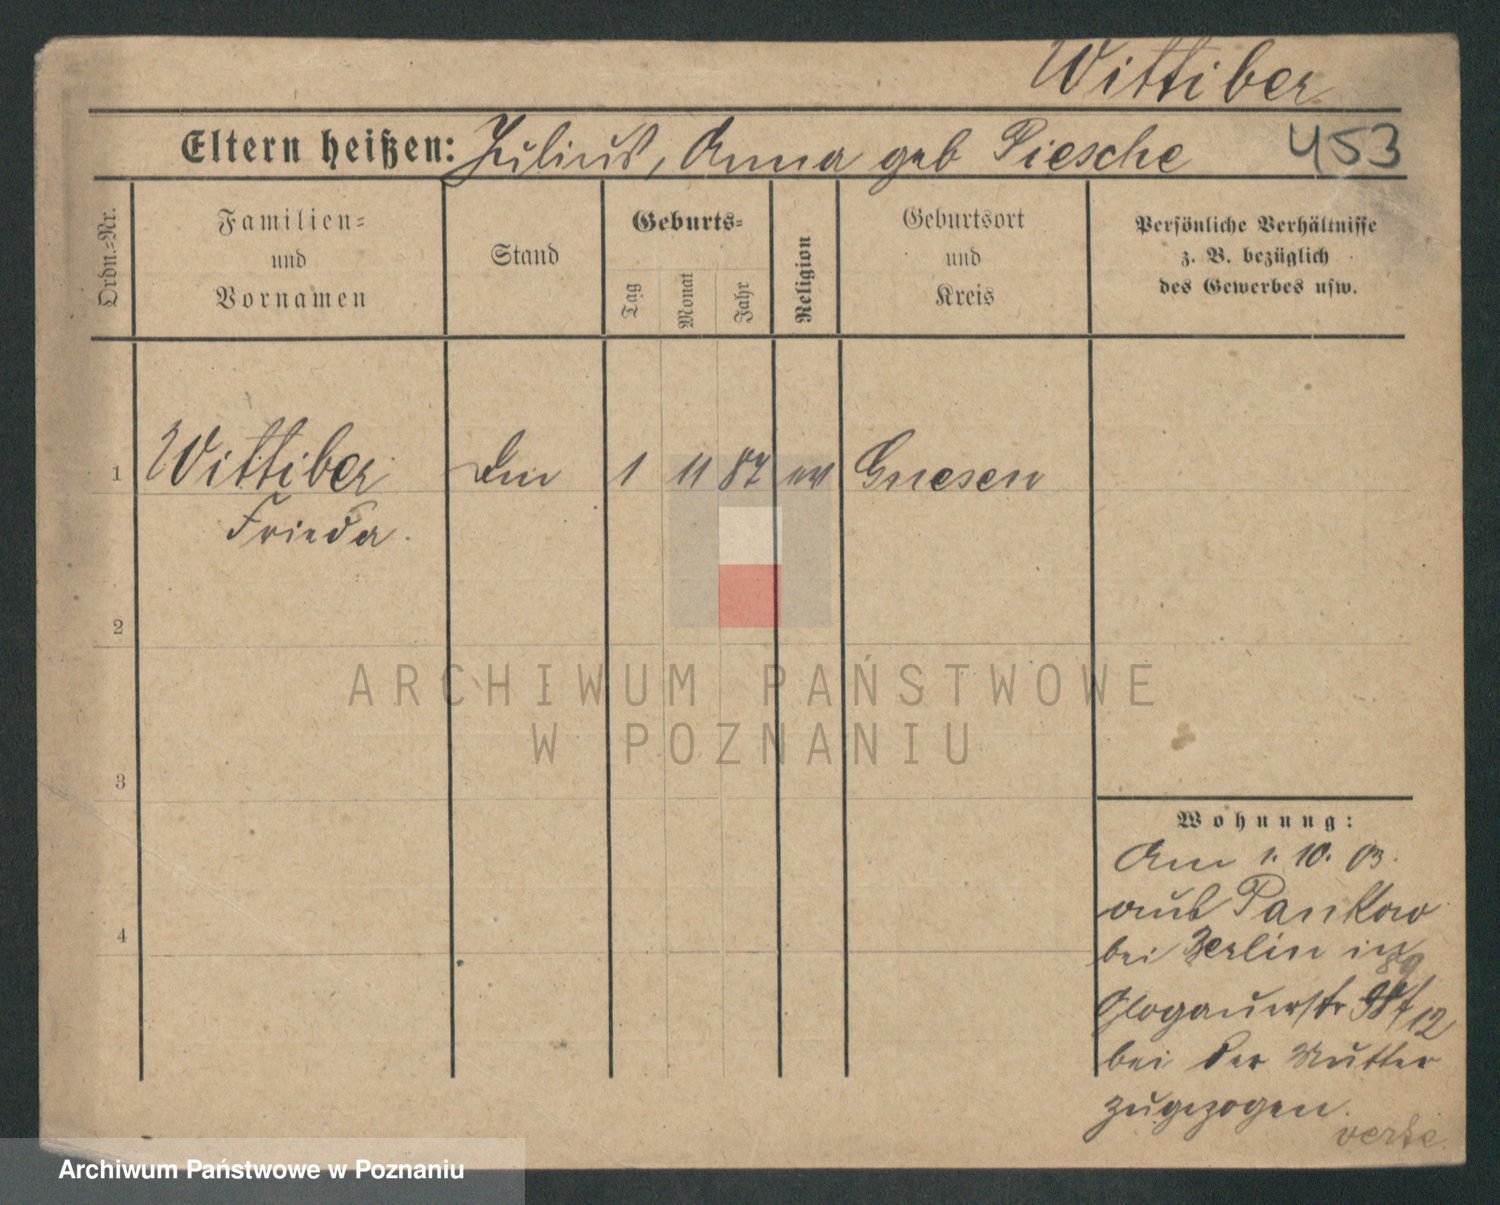 Wittiber
Eltern heißen: Julius, Anna geb Piesche 453
Ordn.-Nr.
Familien-
und
Vornamen
Stand
Geburts-
Tag
Monat
Jahr
Religion
Geburtsort
und
Kreis
Persönliche Verhältnisse
z. B. bezüglich
des Gewerbes usw.
1 Wittiber 1 11 87 ev Gnesen
Frieda.
2
3
4
ARCHIWUM PAŃSTWOWE
W POZNANIU
Wohnung:
Am 1. 10. 03.
aus Pankow
bei Berlin in
89
Glogauerstr
12
bei der Mutter
zugezogen.
Archiwum Państwowe w Poznaniu